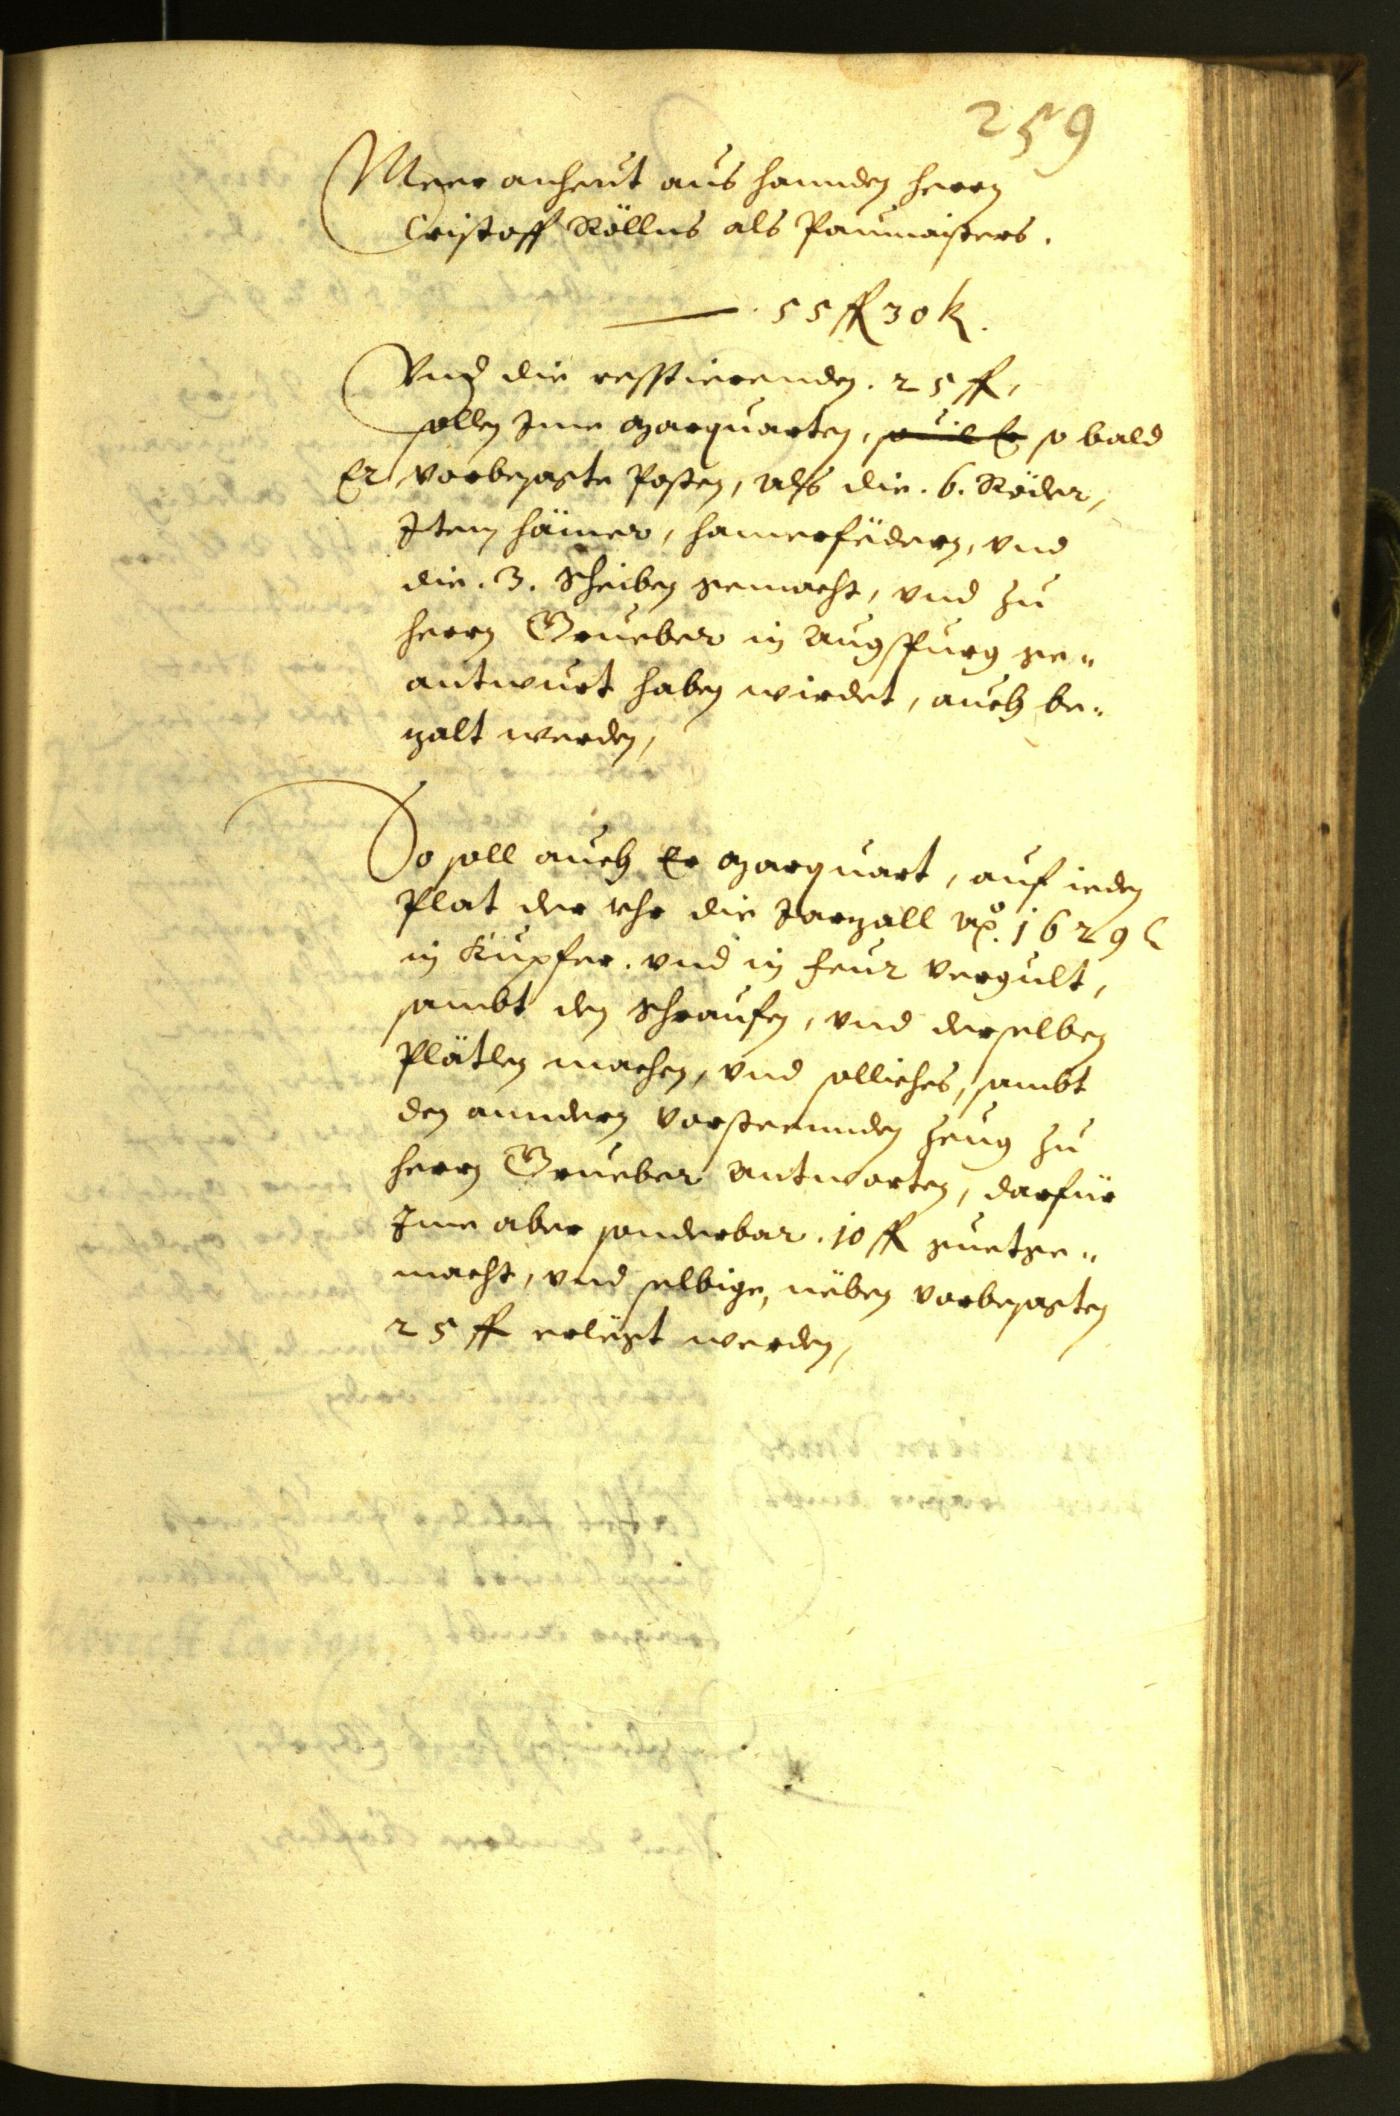 259
Meer anheut aus hannden herrn
Cristoff Röllns als Paumaisters.
55 fl 30 k.
Vnd die resstierenden. 25 fl,
sollen Jme Marquarten, so bald
Er vorbesagte Posten, alls die. 6. Röder,
Jtem hämer, hamerfëdern, vnd
die. 3. Scheiben gemacht, vnd zu
herrn Grueber in Augspurg ge„
antwurt haben wirdet, auch be„
zalt werden,
So soll auch Er Marquart, auf ieden
Plat der vhr die Jarzall Aõ. 1629
in Kupfer. vnd in feur vergult,
sambt den schraufen, vnd derselben
Plätlen machen, vnd solliches, sambt
den anndern vorsteennden zeug zu
herrn Grueber antworten, darfür
Jme aber sonderbar. 10 fl guetge„
macht, vnd selbige, nëben vorbesagten
25 fl erlëgt werden,